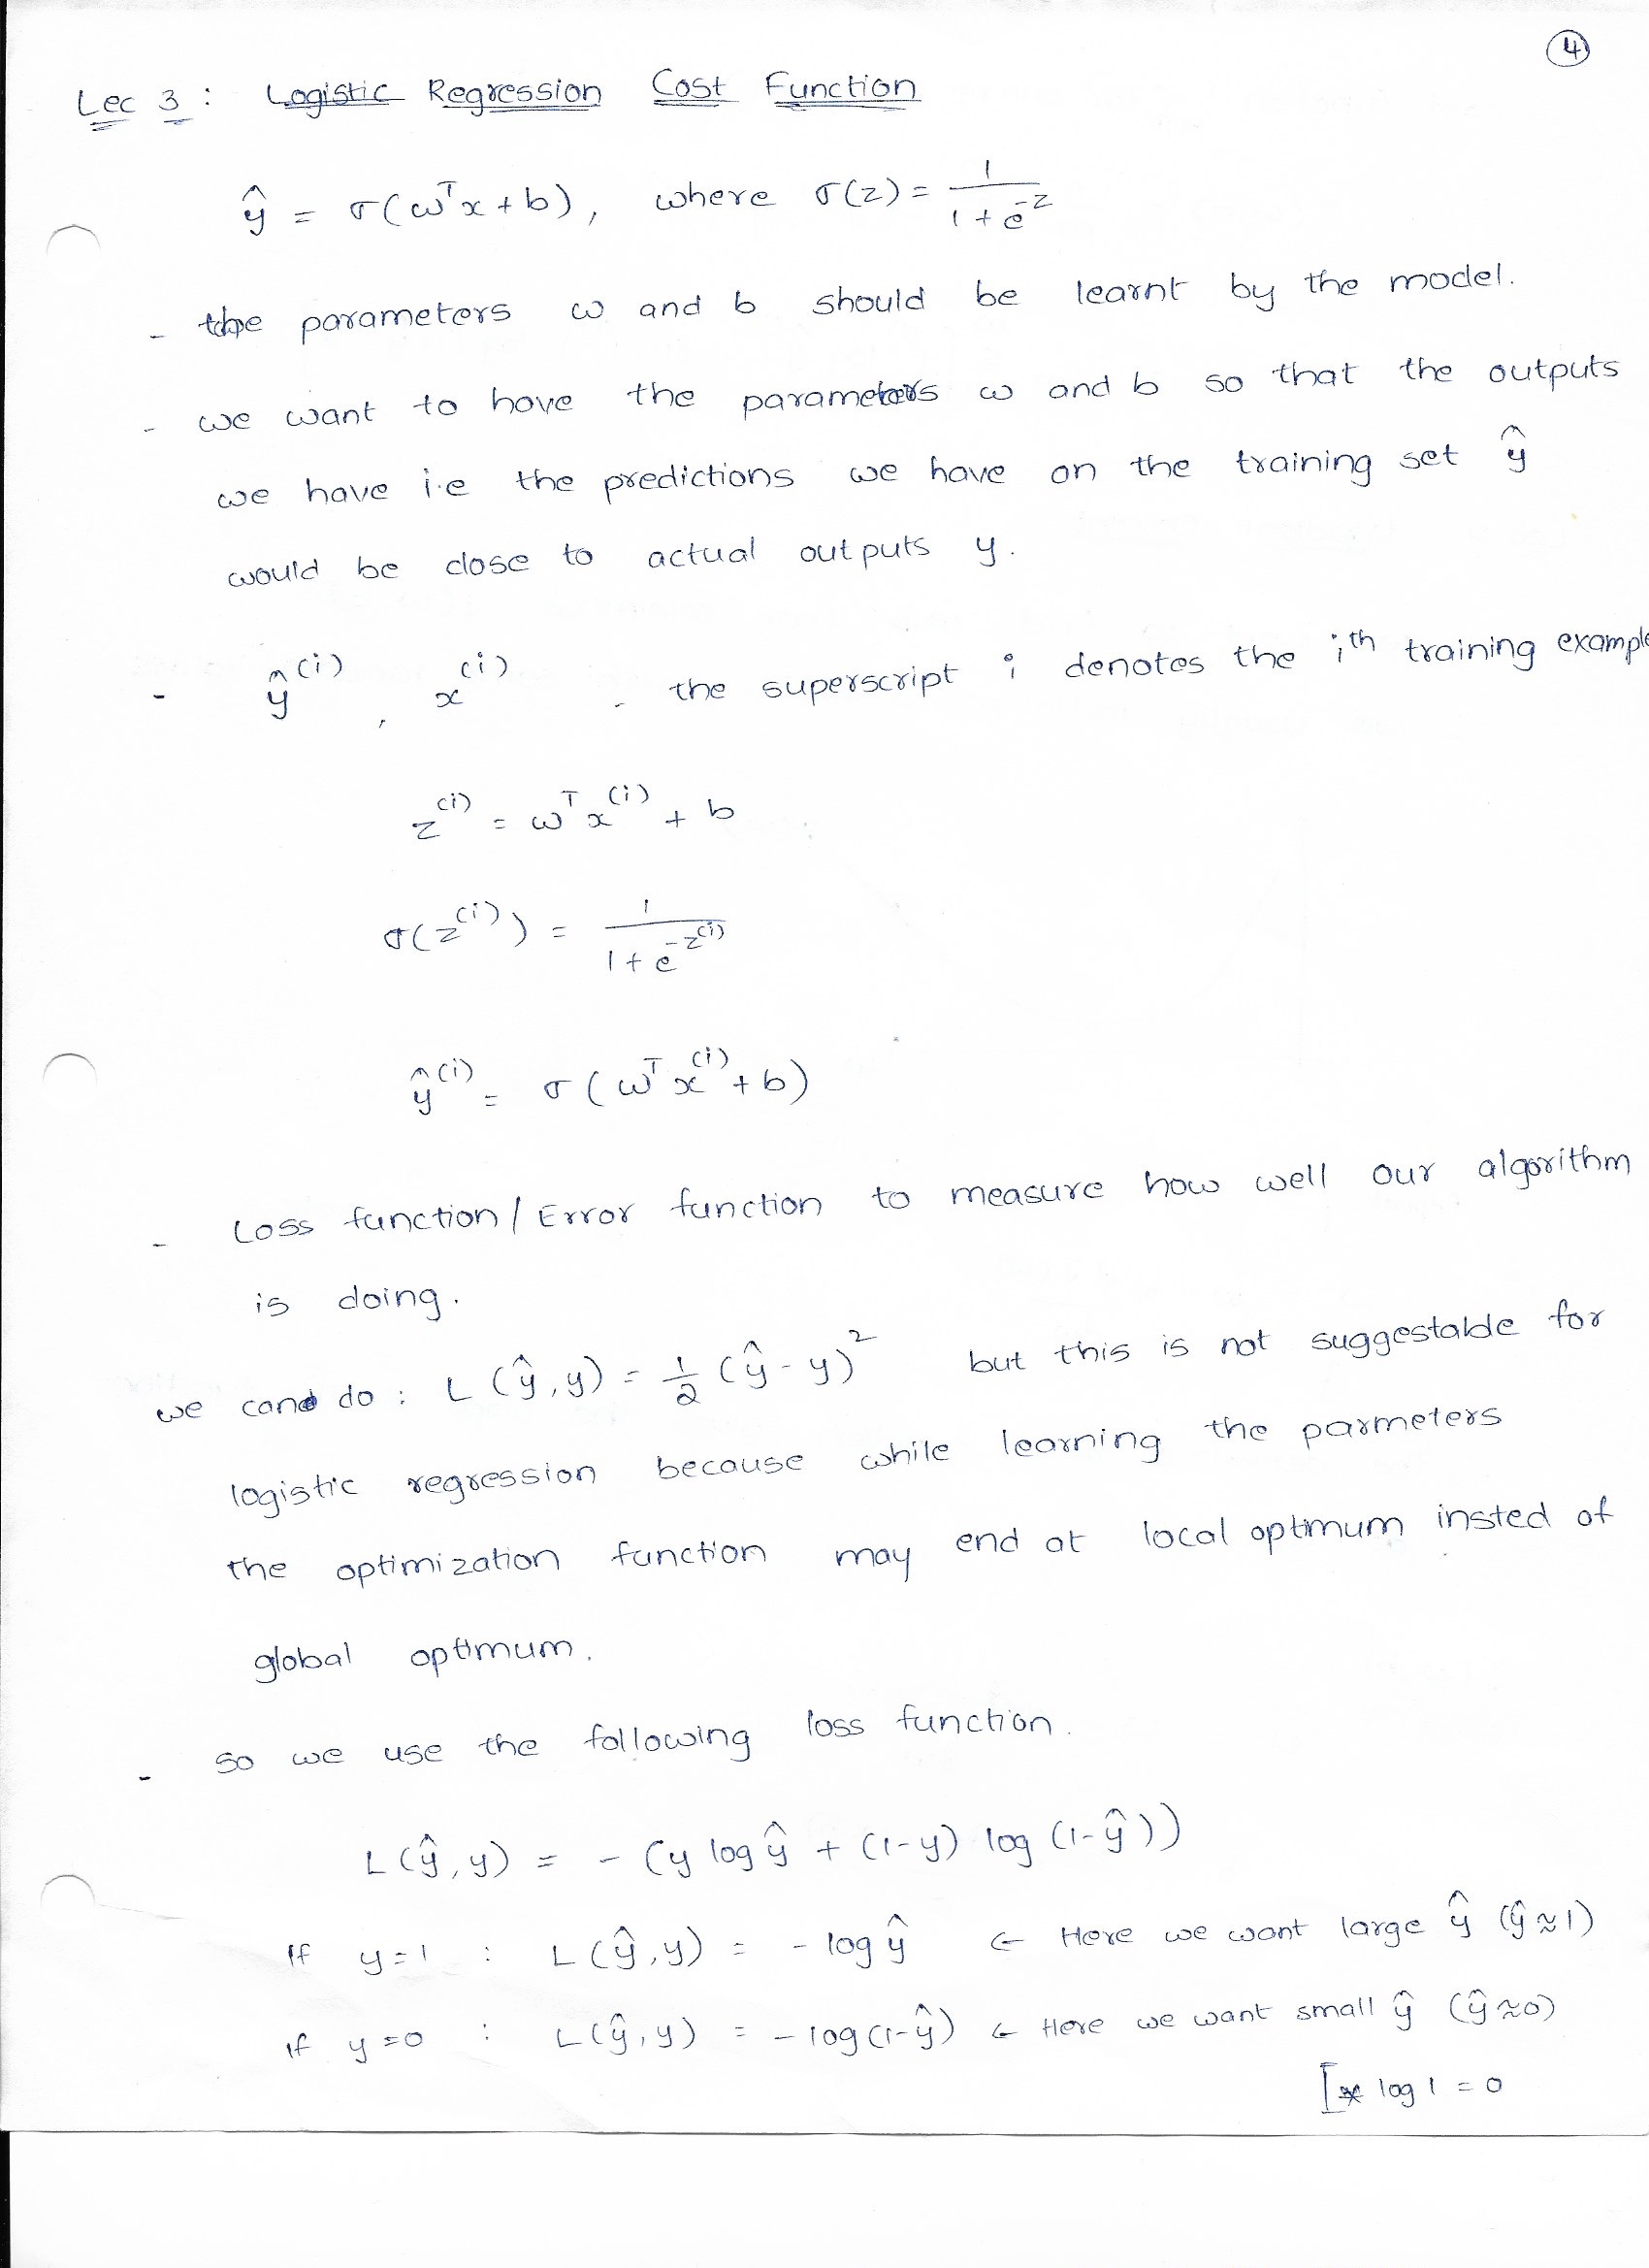 4
Lec 3 : Logistic Regression Cost Function
ŷ = σ(ωᵀx + b), where σ(z) = 1/(1 + e^-z)
- the parameters ω and b should be learnt by the model.
- we want to have the parameters ω and b so that the outputs
we have i.e the predictions we have on the training set ŷ
would be close to actual outputs y.
- ŷ^(i), x^(i) - the superscript i denotes the i^th training example
z^(i) = ωᵀx^(i) + b
σ(z^(i)) = 1/(1 + e^-z^(i))
ŷ^(i) = σ(ωᵀx^(i) + b)
- Loss function / Error function to measure how well our algorithm
is doing.
we can do : L(ŷ, y) = 1/2 (ŷ - y)² but this is not suggestable for
logistic regression because while learning the parmeters
the optimization function may end at local optimum insted of
global optimum.
- so we use the following loss function.
L(ŷ, y) = - (y log ŷ + (1-y) log (1-ŷ))
If y=1 : L(ŷ, y) = - log ŷ ← Here we want large ŷ (ŷ≈1)
If y=0 : L(ŷ, y) = - log(1-ŷ) ← Here we want small ŷ (ŷ≈0)
[* log 1 = 0